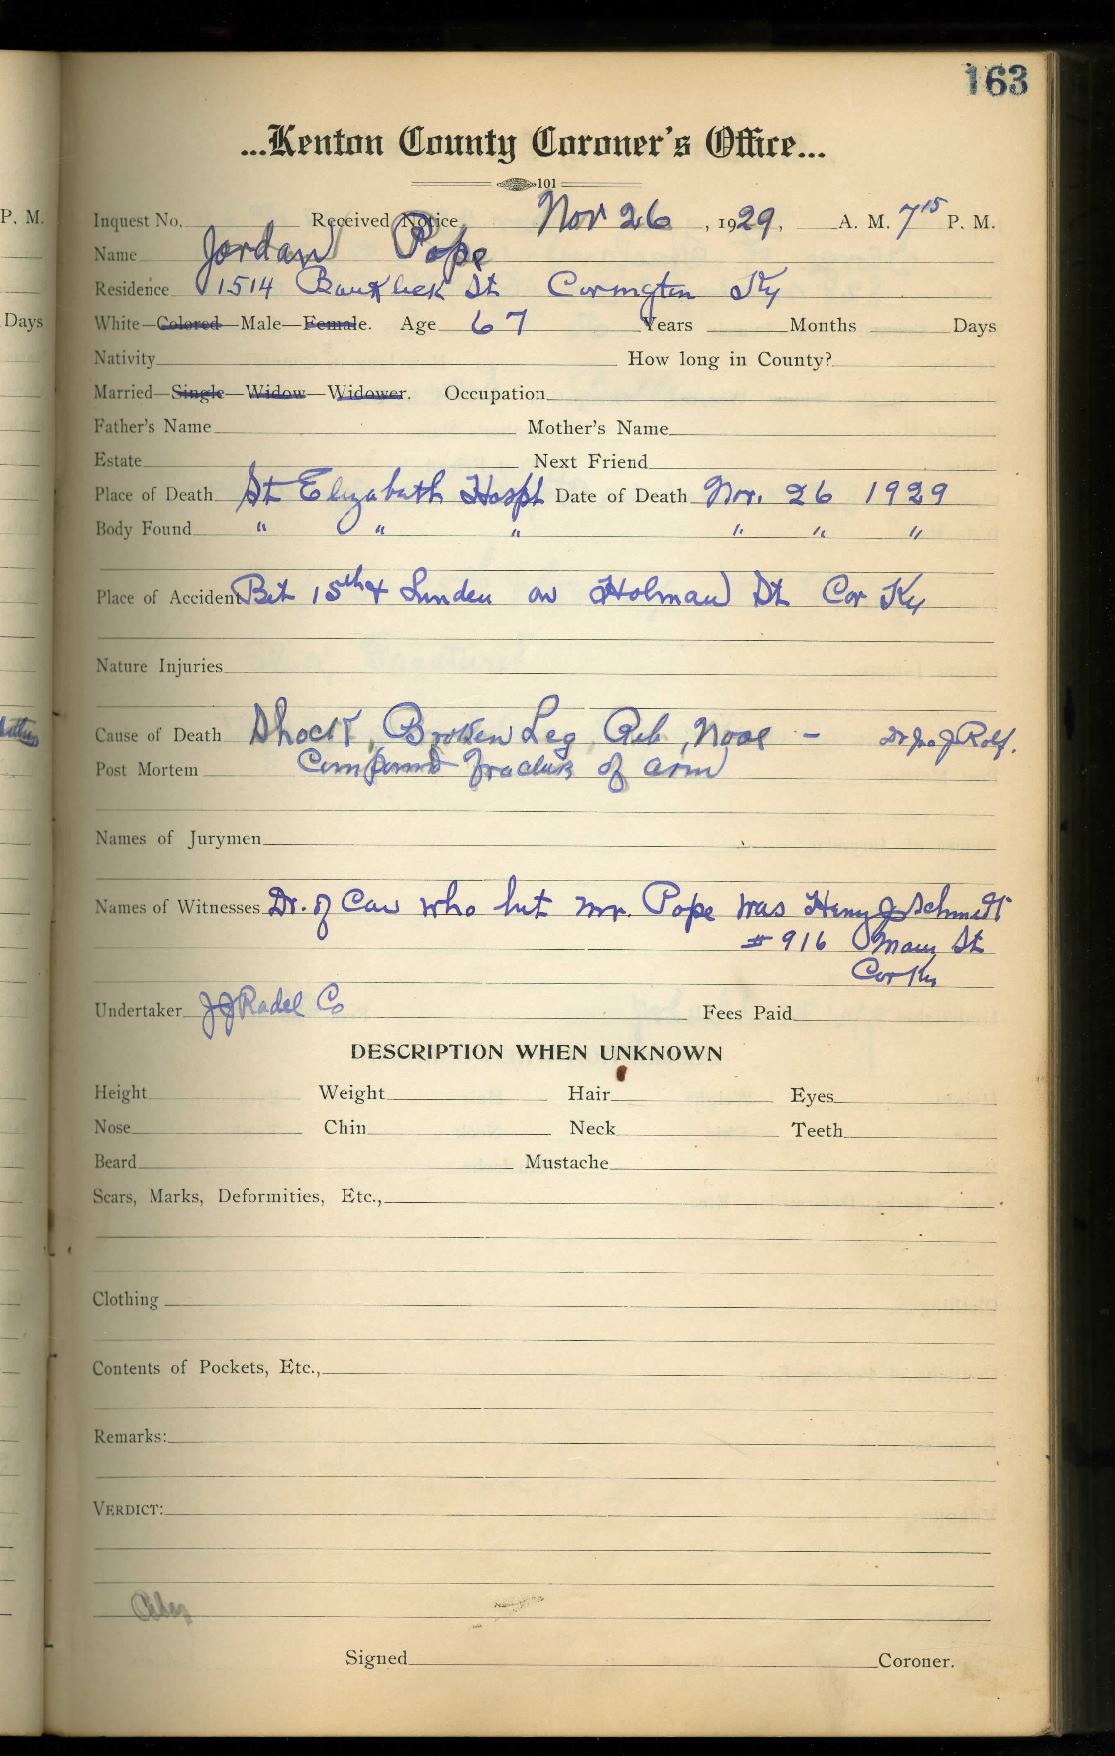 163
...Kenton County Coroner's Office...
101
Inquest No. Received Notice Nov 26, 1929, A. M. 7 15 P. M.
Name Jordan Pope
Residence 1514 Banklick St Covington Ky
White—Colored—Male—Female. Age 67 Years Months Days
Nativity How long in County?
Married—Single—Widow—Widower. Occupation
Father's Name Mother's Name
Estate Next Friend
Place of Death St Elizabeth Hospt Date of Death Nov. 26 1929
Body Found " " " " " "
Place of Accident Bet 15th & Linden on Holman St Cov Ky
Nature Injuries
Cause of Death Shock, Broken Leg, Rib, Nose - Dr Jno J Rolf.
Post Mortem Compound fracture of arm
Names of Jurymen
Names of Witnesses Dr. of Car who hit Mr. Pope was Henry J Schmidt
# 916 Main St
Cov Ky
Undertaker J J Radel Co Fees Paid
DESCRIPTION WHEN UNKNOWN
Height Weight Hair Eyes
Nose Chin Neck Teeth
Beard Mustache
Scars, Marks, Deformities, Etc.,
Clothing
Contents of Pockets, Etc.,
Remarks:
VERDICT:
Signed Coroner.
P. M.
Days